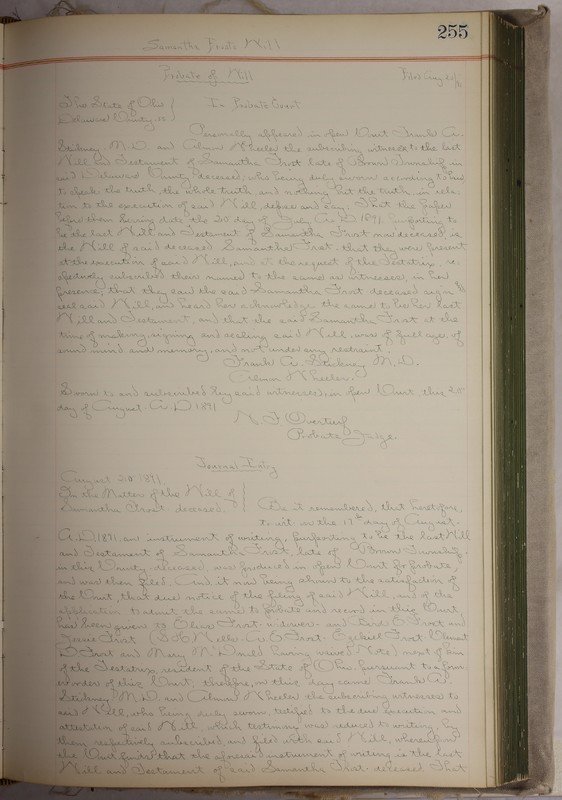 255
Samantha Frost's Will
Probate of Will
Filed Aug 20/91
The State of Ohio
Delaware County ss
In Probate Court
Personally appeared in open Court Frank A.
Stickney M.D. and Alman Wheeler the subscribing witnesses to the last
Will and Testament of Samantha Frost late of Brown Township in
said Delaware County deceased, who being duly sworn according to law
to speak the truth the whole truth, and nothing but the truth, in rela-
tion to the execution of said Will, depose and say: That the paper
before them bearing date the 20 day of A.D. 1891 purporting to
be the last Will and Testament of Samantha Frost now deceased, is
the Will of said deceased Samantha Frost, that they were present
at the execution of said Will, and at the request of the Testatrix re-
spectively subscribed their names to the same as witnesses, in her
presence, that they saw the said Samantha Frost deceased sign &
seal said Will, and heard her acknowledge the same to be her last
Will and Testament, and that the said Samantha Frost at the
time of making, signing and sealing said Will, was of full age, of
sound mind and memory, and not under any restraint.
Frank A. Stickney M.D.
Alman Wheeler.
Sworn to and subscribed by said witnesses in open Court, this 20
day of August A.D. 1891
N. F. Overturf
Probate Judge.
Journal Entry
August 20 1891.
In the Matter of the Will of
Samantha Frost, deceased.
Be it remembered, that heretofore,
to wit: on the 17th day of August
A.D. 1891 an instrument of writing, purporting to be the last Will
and Testament of Samantha Frost, late of Brown Township
in this County deceased, was produced in open Court for probate,
and was then filed. And it now being shown to the satisfaction of
the Court, that due notice of the filing of said Will, and of the
application to admit the same to probate and record in this Court,
has been given to Frost widower and Frost and
Frost Frost Ezekiel Frost
Frost and Mary next of kin
of the Testatrix, resident of the State of Ohio, pursuant to a form
er order of this Court, therefore, on this day came Frank A.
Stickney M.D. and Alman Wheeler the subscribing witnesses to
said Will, who being duly sworn, testified to the due execution and
attestation of said Will, which testimony was reduced to writing, by
them respectively subscribed and filed with said Will, whereupon
the Court finds that the aforesaid instrument of writing is the last
Will and Testament of said Samantha Frost deceased That